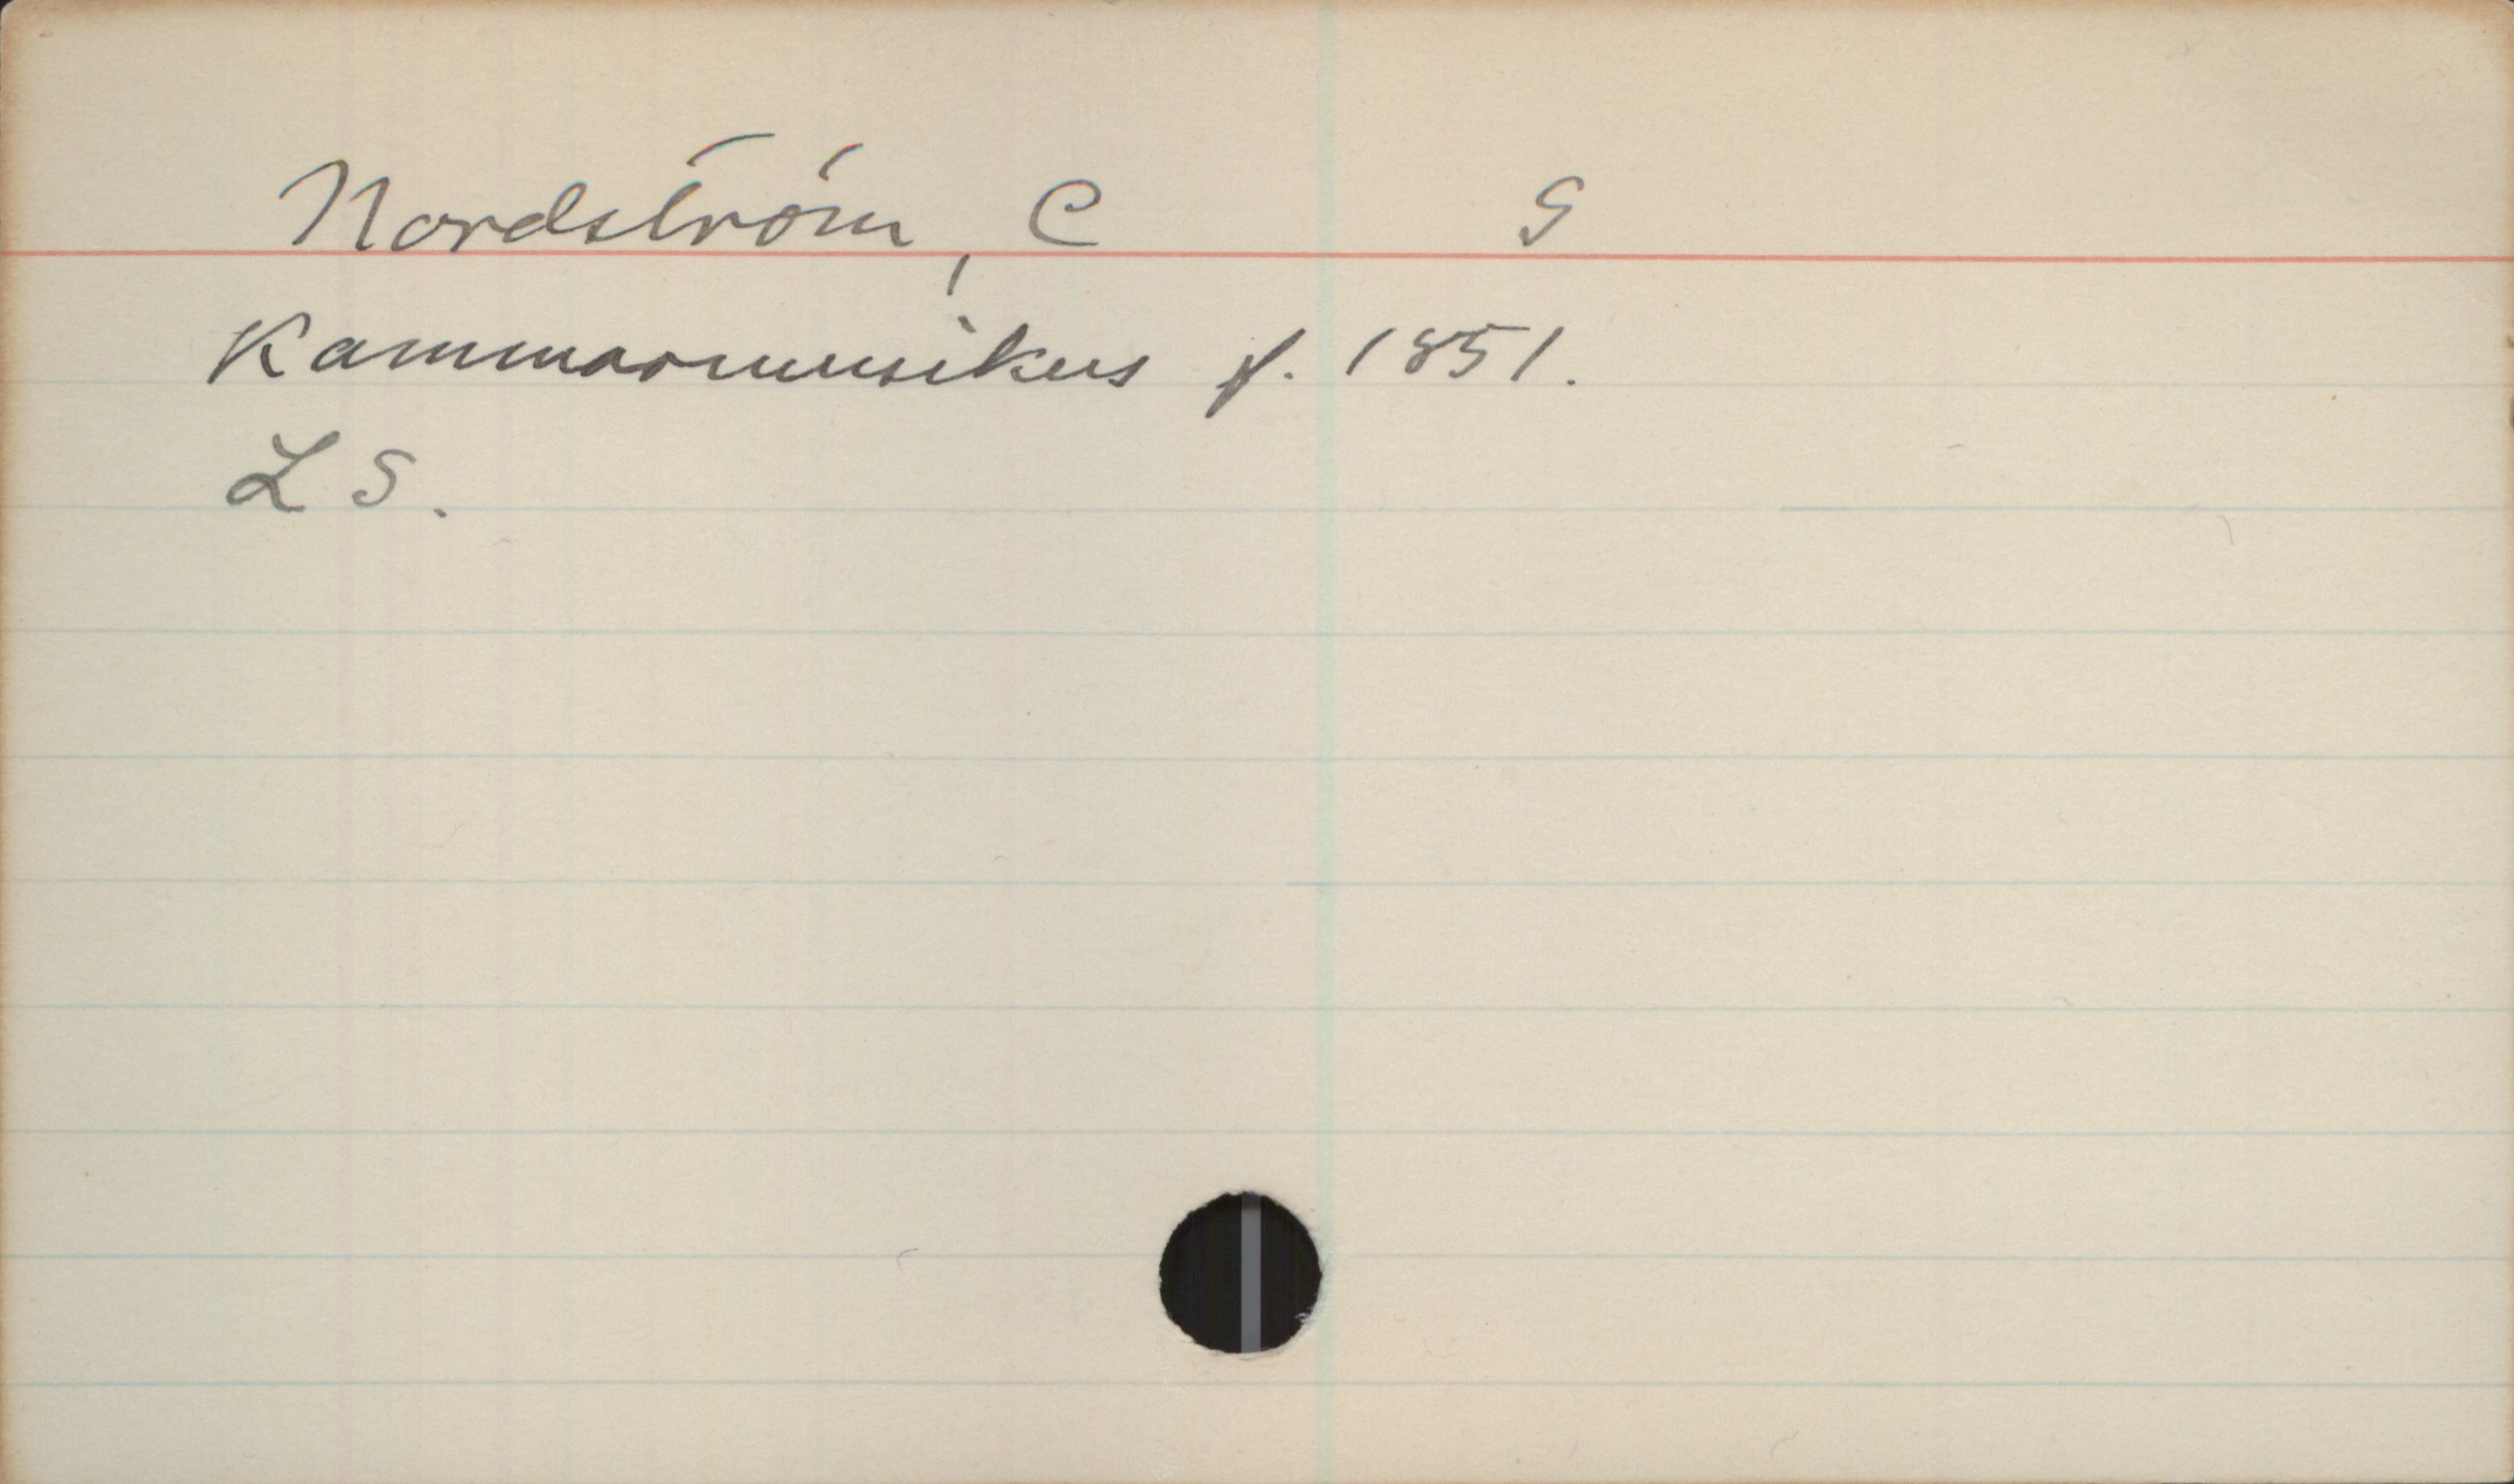 Nordström, C G
Kammarmusikus f. 1851.
L S.